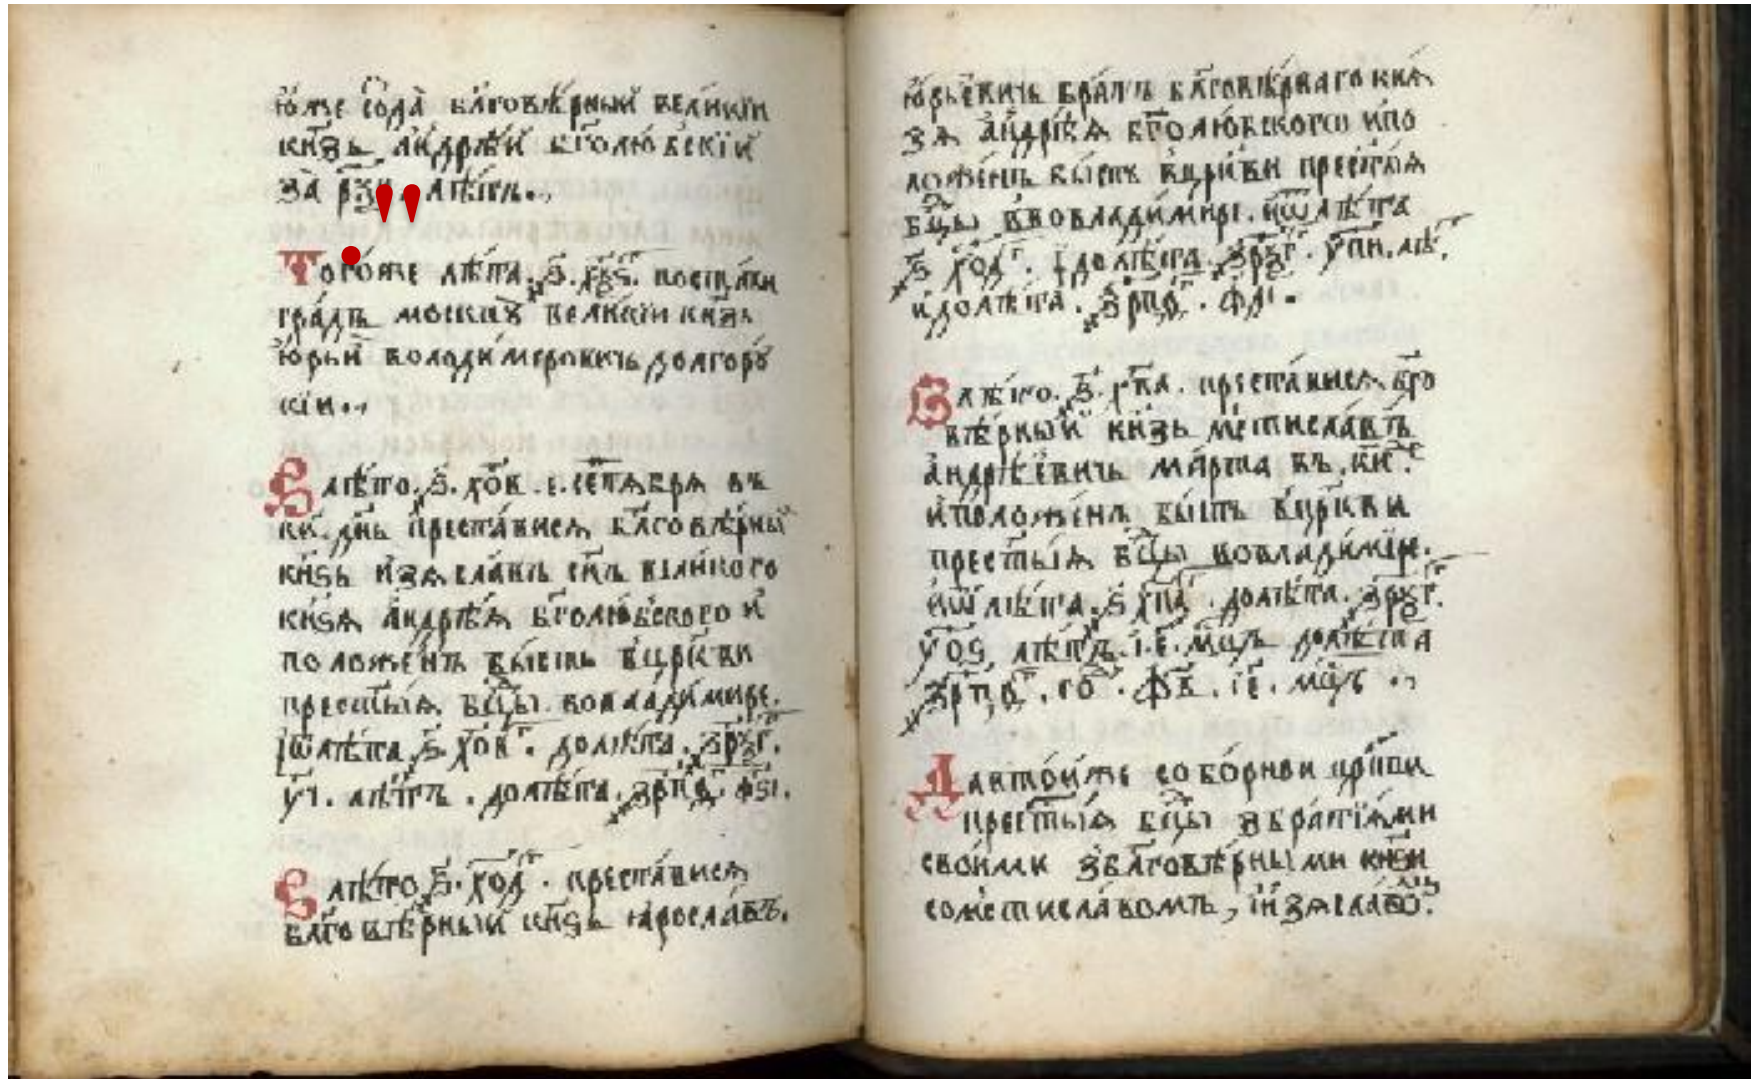 юже созда благовѣрныи великїи
кн҃зь андрѣй бг҃олюбскїй
за лѣтъ
Тогоже лѣта ѕ҃ хѯѕ постави
градъ москву великїи кн҃зь
юрьи володимеровичь долгору
кїи
В лѣто ѕ҃ хо҃в сентября въ
ки҃ дн҃ь преставися бл҃говѣрныи
кн҃ѕь изяславъ сн҃ъ великого
кн҃ѕя андрѣя бг҃олюбского и
положенъ бысть вцр҃кви
прест҃ыя бц҃ы вовладимире
ѿлѣта ѕ҃ хо҃в г долѣта зрч҃г
у҃і лѣтъ долѣта зрп҃в фѕ҃і
В лѣто ѕ҃ хо҃д преставися
бл҃говѣрныи кн҃ѕь ярославъ
юрьевичь братъ бл҃говѣрнаго кня
зя андрѣя бг҃олюбскогѡ ипо
ложенъ бысть вцр҃кви прест҃ыя
бц҃ы вовладимире ѿлѣта
ѕ҃ хо҃д г долѣта у҃пи лѣ
идолѣта зрп҃в фд҃і
В лѣто ѕ҃ хп҃а преставися бл҃го
вѣрныи кн҃зь мстиславъ
андрѣевичь марта въ ки҃
иположенъ бысть вцр҃кви
прест҃ыя бц҃ы вовладимире
ѿлѣта ѕ҃ хп҃а долѣта
у҃оѕ лѣтъ і е мц҃ъ долѣта
зрп҃в го фв҃ іе҃ мц҃ъ
А втойже соборнои цр҃кви
прест҃ыя бц҃ы збратїями
своими збл҃говѣрными кн҃ѕи
сомстиславомъ, изяславо